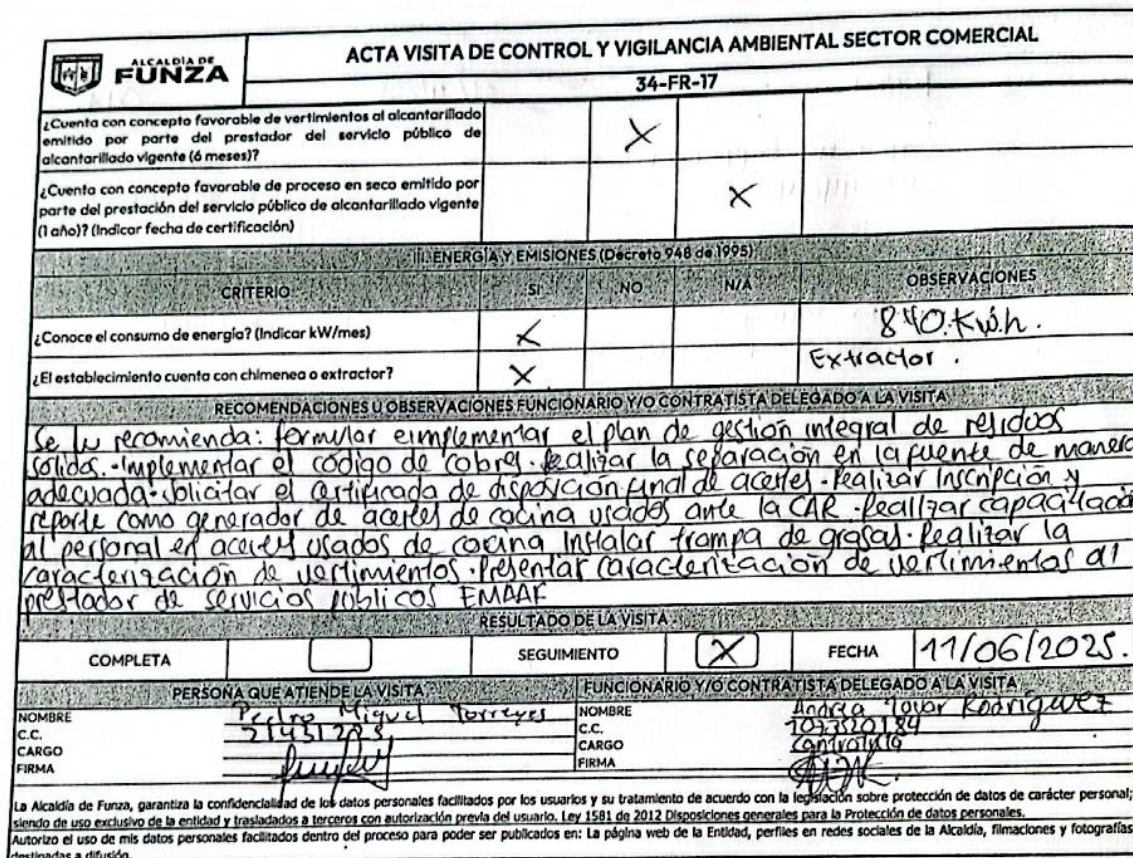 ALCALDÍA DE
FUNZA
ACTA VISITA DE CONTROL Y VIGILANCIA AMBIENTAL SECTOR COMERCIAL
34-FR-17
¿Cuenta con concepto favorable de vertimientos al alcantarillado
emitido por parte del prestador del servicio público de
alcantarillado vigente (6 meses)? X
¿Cuenta con concepto favorable de proceso en seco emitido por
parte del prestación del servicio público de alcantarillado vigente
(1 año)? (Indicar fecha de certificación) X
III. ENERGÍA Y EMISIONES (Decreto 948 de 1995)
CRITERIO SI NO N/A OBSERVACIONES
¿Conoce el consumo de energía? (Indicar kW/mes) X Kw.h.
¿El establecimiento cuenta con chimenea o extractor? X Extractor.
RECOMENDACIONES U OBSERVACIONES FUNCIONARIO Y/O CONTRATISTA DELEGADO A LA VISITA
Se le recomienda: formular e implementar el plan de gestión integral de residuos
sólidos. - Implementar el código de . Realizar la separación en la fuente de manera
adecuada. Solicitar el certificada de disposición final de aceites. Realizar Inscripción y
reporte como generador de aceites de cocina usados ante la CAR. Realizar capacitación
al personal en aceites usados de cocina Instalar trampa de grasas. Realizar la
caracterización de vertimientos. Presentar caracterización de vertimientos al
prestador de servicios públicos EMAAF
RESULTADO DE LA VISITA
COMPLETA SEGUIMIENTO X FECHA 11/06/2025.
PERSONA QUE ATIENDE LA VISITA FUNCIONARIO Y/O CONTRATISTA DELEGADO A LA VISITA
NOMBRE Pedro Miguel NOMBRE Andrea Tovar Rodriguez
C.C. C.C.
CARGO CARGO Contratista
FIRMA FIRMA
La Alcaldía de Funza, garantiza la confidencialidad de los datos personales facilitados por los usuarios y su tratamiento de acuerdo con la legislación sobre protección de datos de carácter personal;
siendo de uso exclusivo de la entidad y trasladados a terceros con autorización previa del usuario. Ley 1581 de 2012 Disposiciones generales para la Protección de datos personales.
Autorizo el uso de mis datos personales facilitados dentro del proceso para poder ser publicados en: La página web de la Entidad, perfiles en redes sociales de la Alcaldía, filmaciones y fotografías
destinadas a difusión.